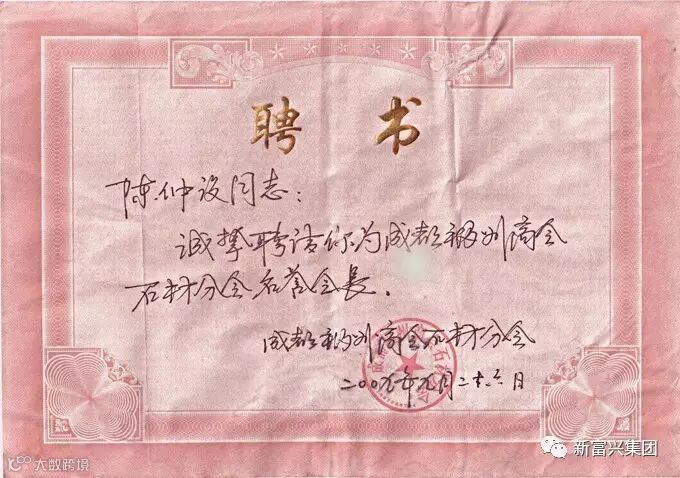 聘书
陈仲设同志:
诚挚聘请你为成都福州商会
石材分会名誉会长.
成都福州商会石材分会
二00九年元月二十六日
新富兴集团
大数跨境